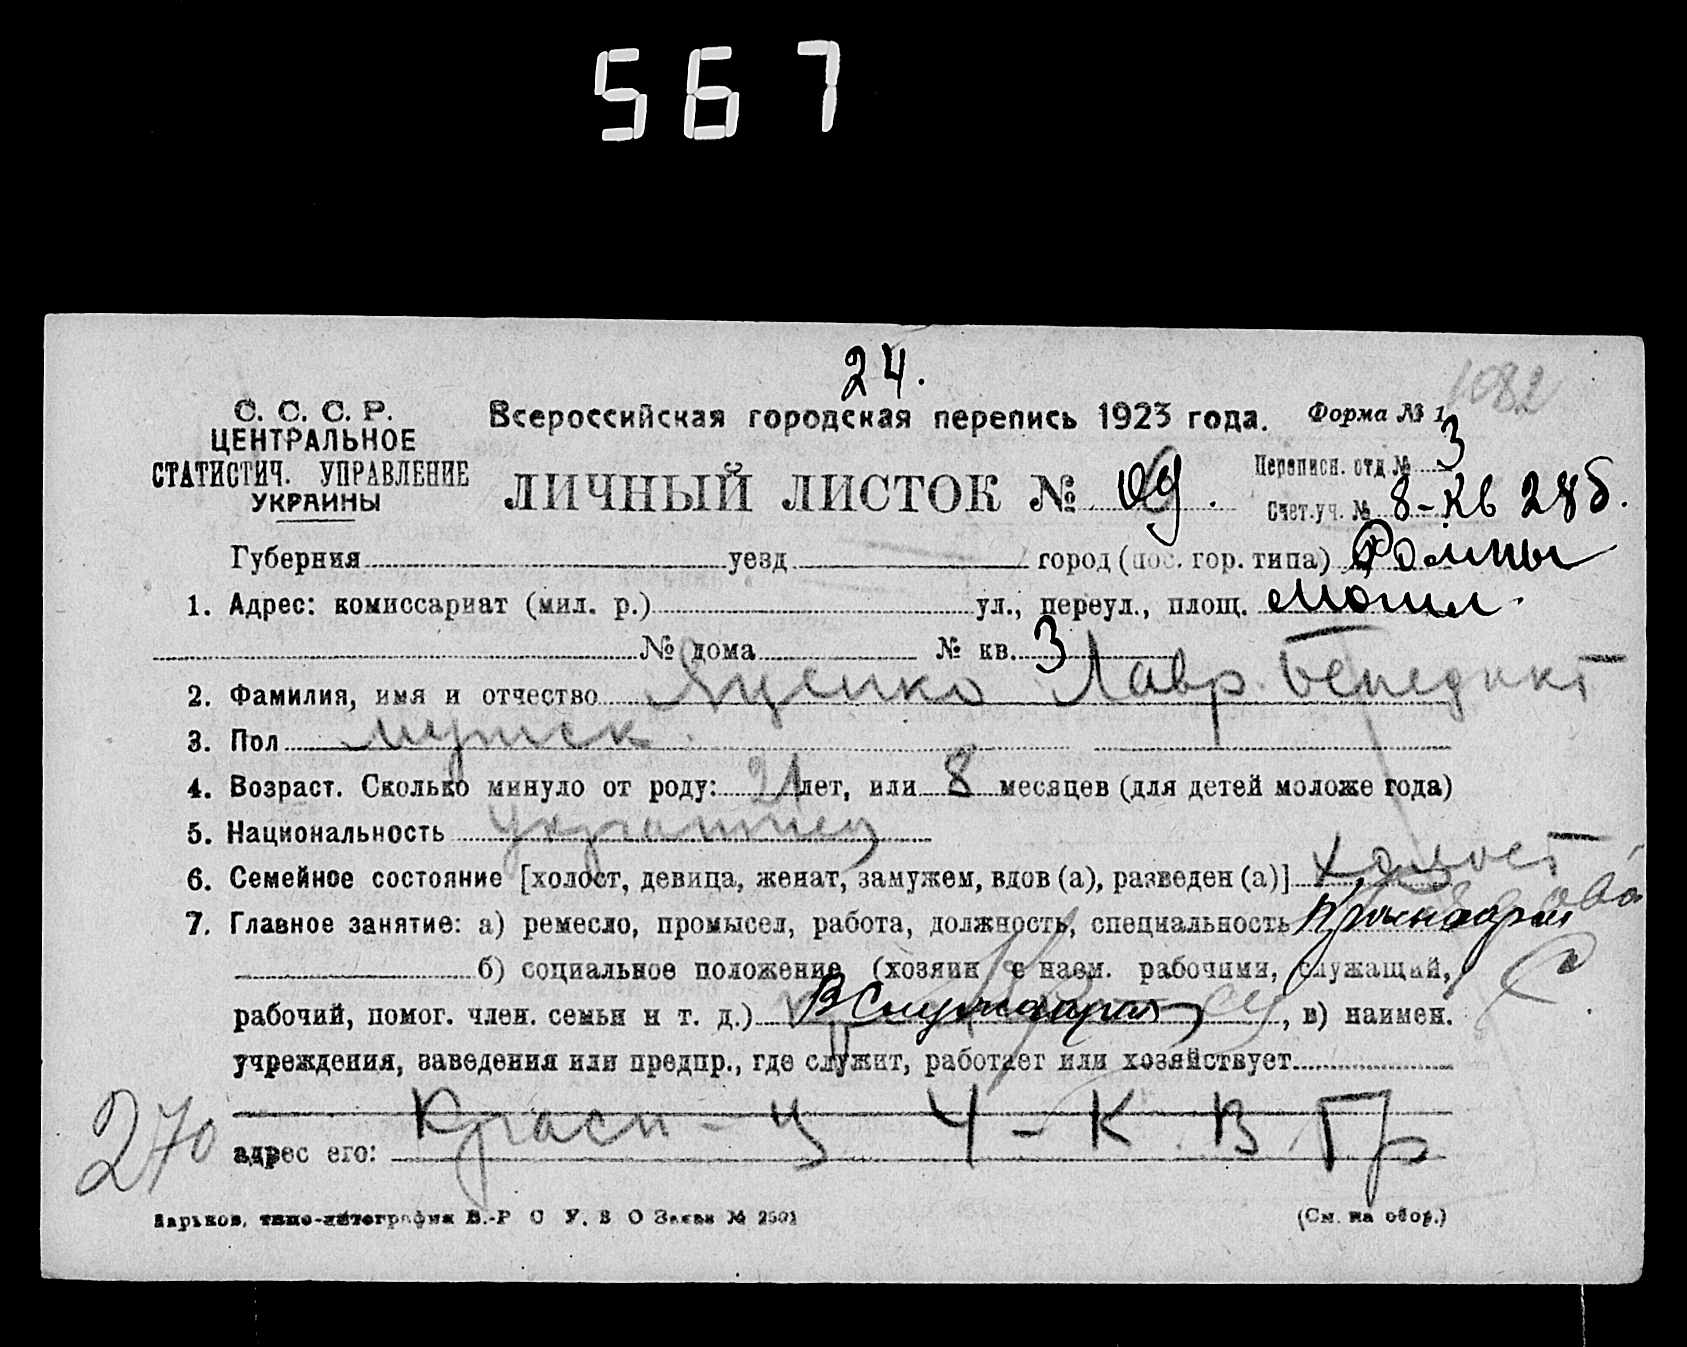 567
24.
1082
С. С. С. Р.
ЦЕНТРАЛЬНОЕ
СТАТИСТИЧ. УПРАВЛЕНИЕ
УКРАИНЫ
Всероссийская городская перепись 1923 года. Форма № 1
ЛИЧНЫЙ ЛИСТОК №
Переписн. отд № 3
Счет.уч. № 8-Кв 28б.
Губерния уезд город (пос. гор. типа) Ромны
1. Адрес: комиссариат (мил. р.) ул., переул., площ. Могил.
№ дома № кв. 3
2. Фамилия, имя и отчество Яценко Лавр. Бенедикт
3. Пол мужск.
4. Возраст. Сколько минуло от роду: 21 лет, или 8 месяцев (для детей моложе года)
5. Национальность украинец
6. Семейное состояние [холост, девица, женат, замужем, вдов (а), разведен (а)] холост
7. Главное занятие: а) ремесло, промысел, работа, должность, специальность
б) социальное положение (хозяин с наем. рабочими, служащий,
рабочий, помог. член. семьи и т. д.) , в) наимен.
учреждения, заведения или предпр., где служит, работает или хозяйствует
Красн-ц 4-К В Гр
270
адрес его:
Харьков, типо-литография В.-Р С У. В О Заказ № 2501
(См. на обор.)